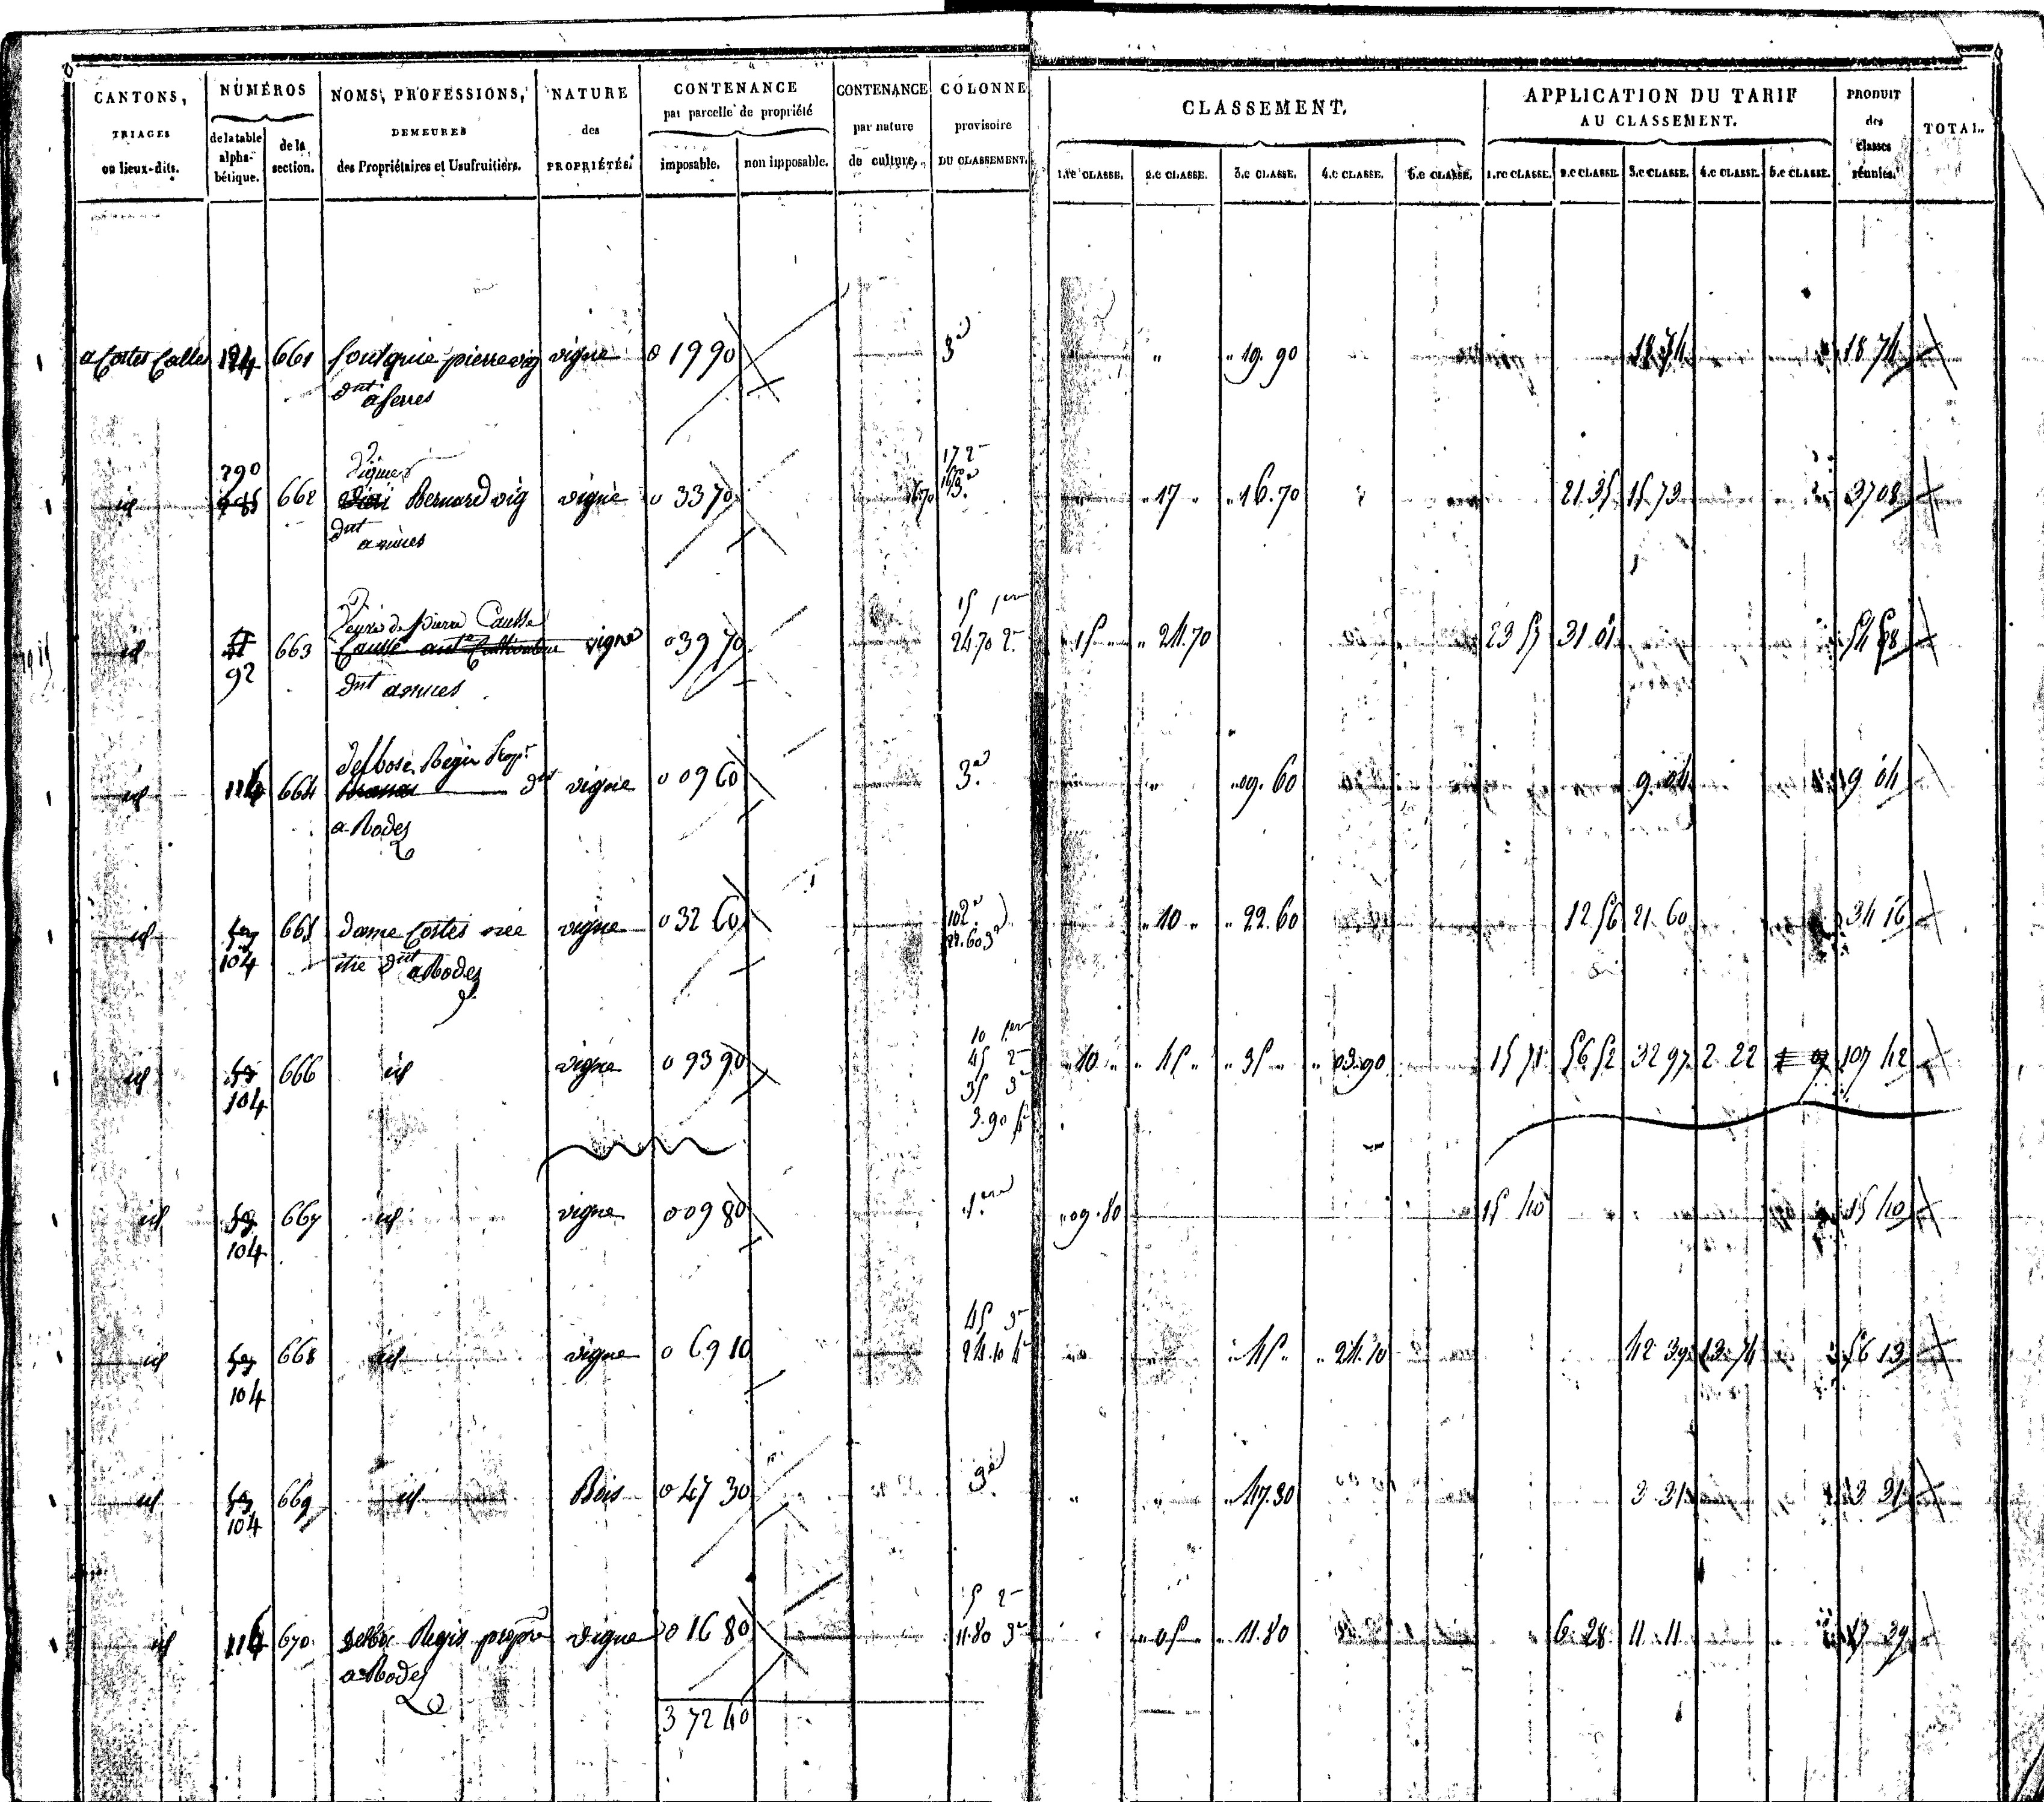 CANTONS, TRIAGES ou lieux-dits. | NUMÉROS de la table alphabétique. | de la section. | NOMS, PROFESSIONS, DEMEURES des Propriétaires et Usufruitiers. | NATURE des PROPRIÉTÉS. | CONTENANCE par parcelle de propriété imposable. | non imposable. | CONTENANCE par nature de culture. | COLONNE provisoire DU CLASSEMENT. | CLASSEMENT. 1.re CLASSE. | 2.e CLASSE. | 3.e CLASSE. | 4.e CLASSE. | 5.e CLASSE. | APPLICATION DU TARIF AU CLASSEMENT. 1.re CLASSE. | 2.e CLASSE. | 3.e CLASSE. | 4.e CLASSE. | 5.e CLASSE. | PRODUIT des classes réunies. | TOTAL.
a Costes Calles 194 661 pierre vig vigne 0 19 90 3e " " 19. 90 18. 74 18 74
dnt a
290 17 2e
id 662 Bernard vig vigne 0 33 70 16 70 3e " 17 " " 16. 70 21. 35 15. 73 37 08
dnt
15 1ere
Pierre Causse
id 663 Causse vigne 0 39 70 24.70 2e " 15 " " 24. 70 23 57 31 01 54 58
92 dnt
Regis Propr
id 116 664 dnt vigne 0 09 60 3e " " 09. 60 9. 04 9 04
a Rodez
id 59 665 dame Costes née vigne 0 32 60 10 2e " 10 " " 22. 60 12 56 21. 60 34 16
104 dnt a Rodez 22.60 3e
10 1ere
id 59 666 id vigne 0 93 90 45 2e " 10 " " 45 " " 35 " " 03. 90 15 71 56. 52 32 97 2. 22 107 42
104 35 3e
3.90 4e
id 59 667 id vigne 0 09 80 1ere " 09. 80 15 40 15 40
104
45 3e
id 59 668 id vigne 0 69 10 24.10 4e " 45 " " 24. 10 42 39 13. 74 56 13
104
id 59 669 id Bois 0 47 30 3e " " " 47. 30 3 31 3 31
104
5 2e
id 116 670 Regis vigne 0 16 80 11.80 3e " 05 " " 11. 80 6. 28 11. 11 17 39
a Rodez
3 72 40